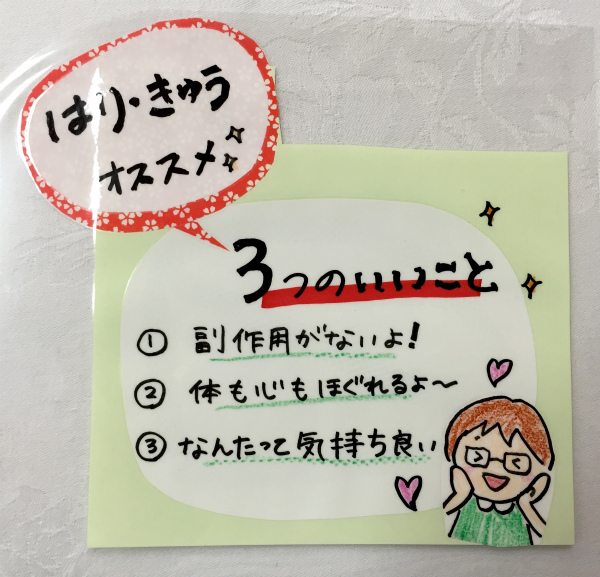 はり・きゅう
オススメ
3つのいいこと
① 副作用がないよ!
② 体も心もほぐれるよ〜
③ なんたって気持ち良い